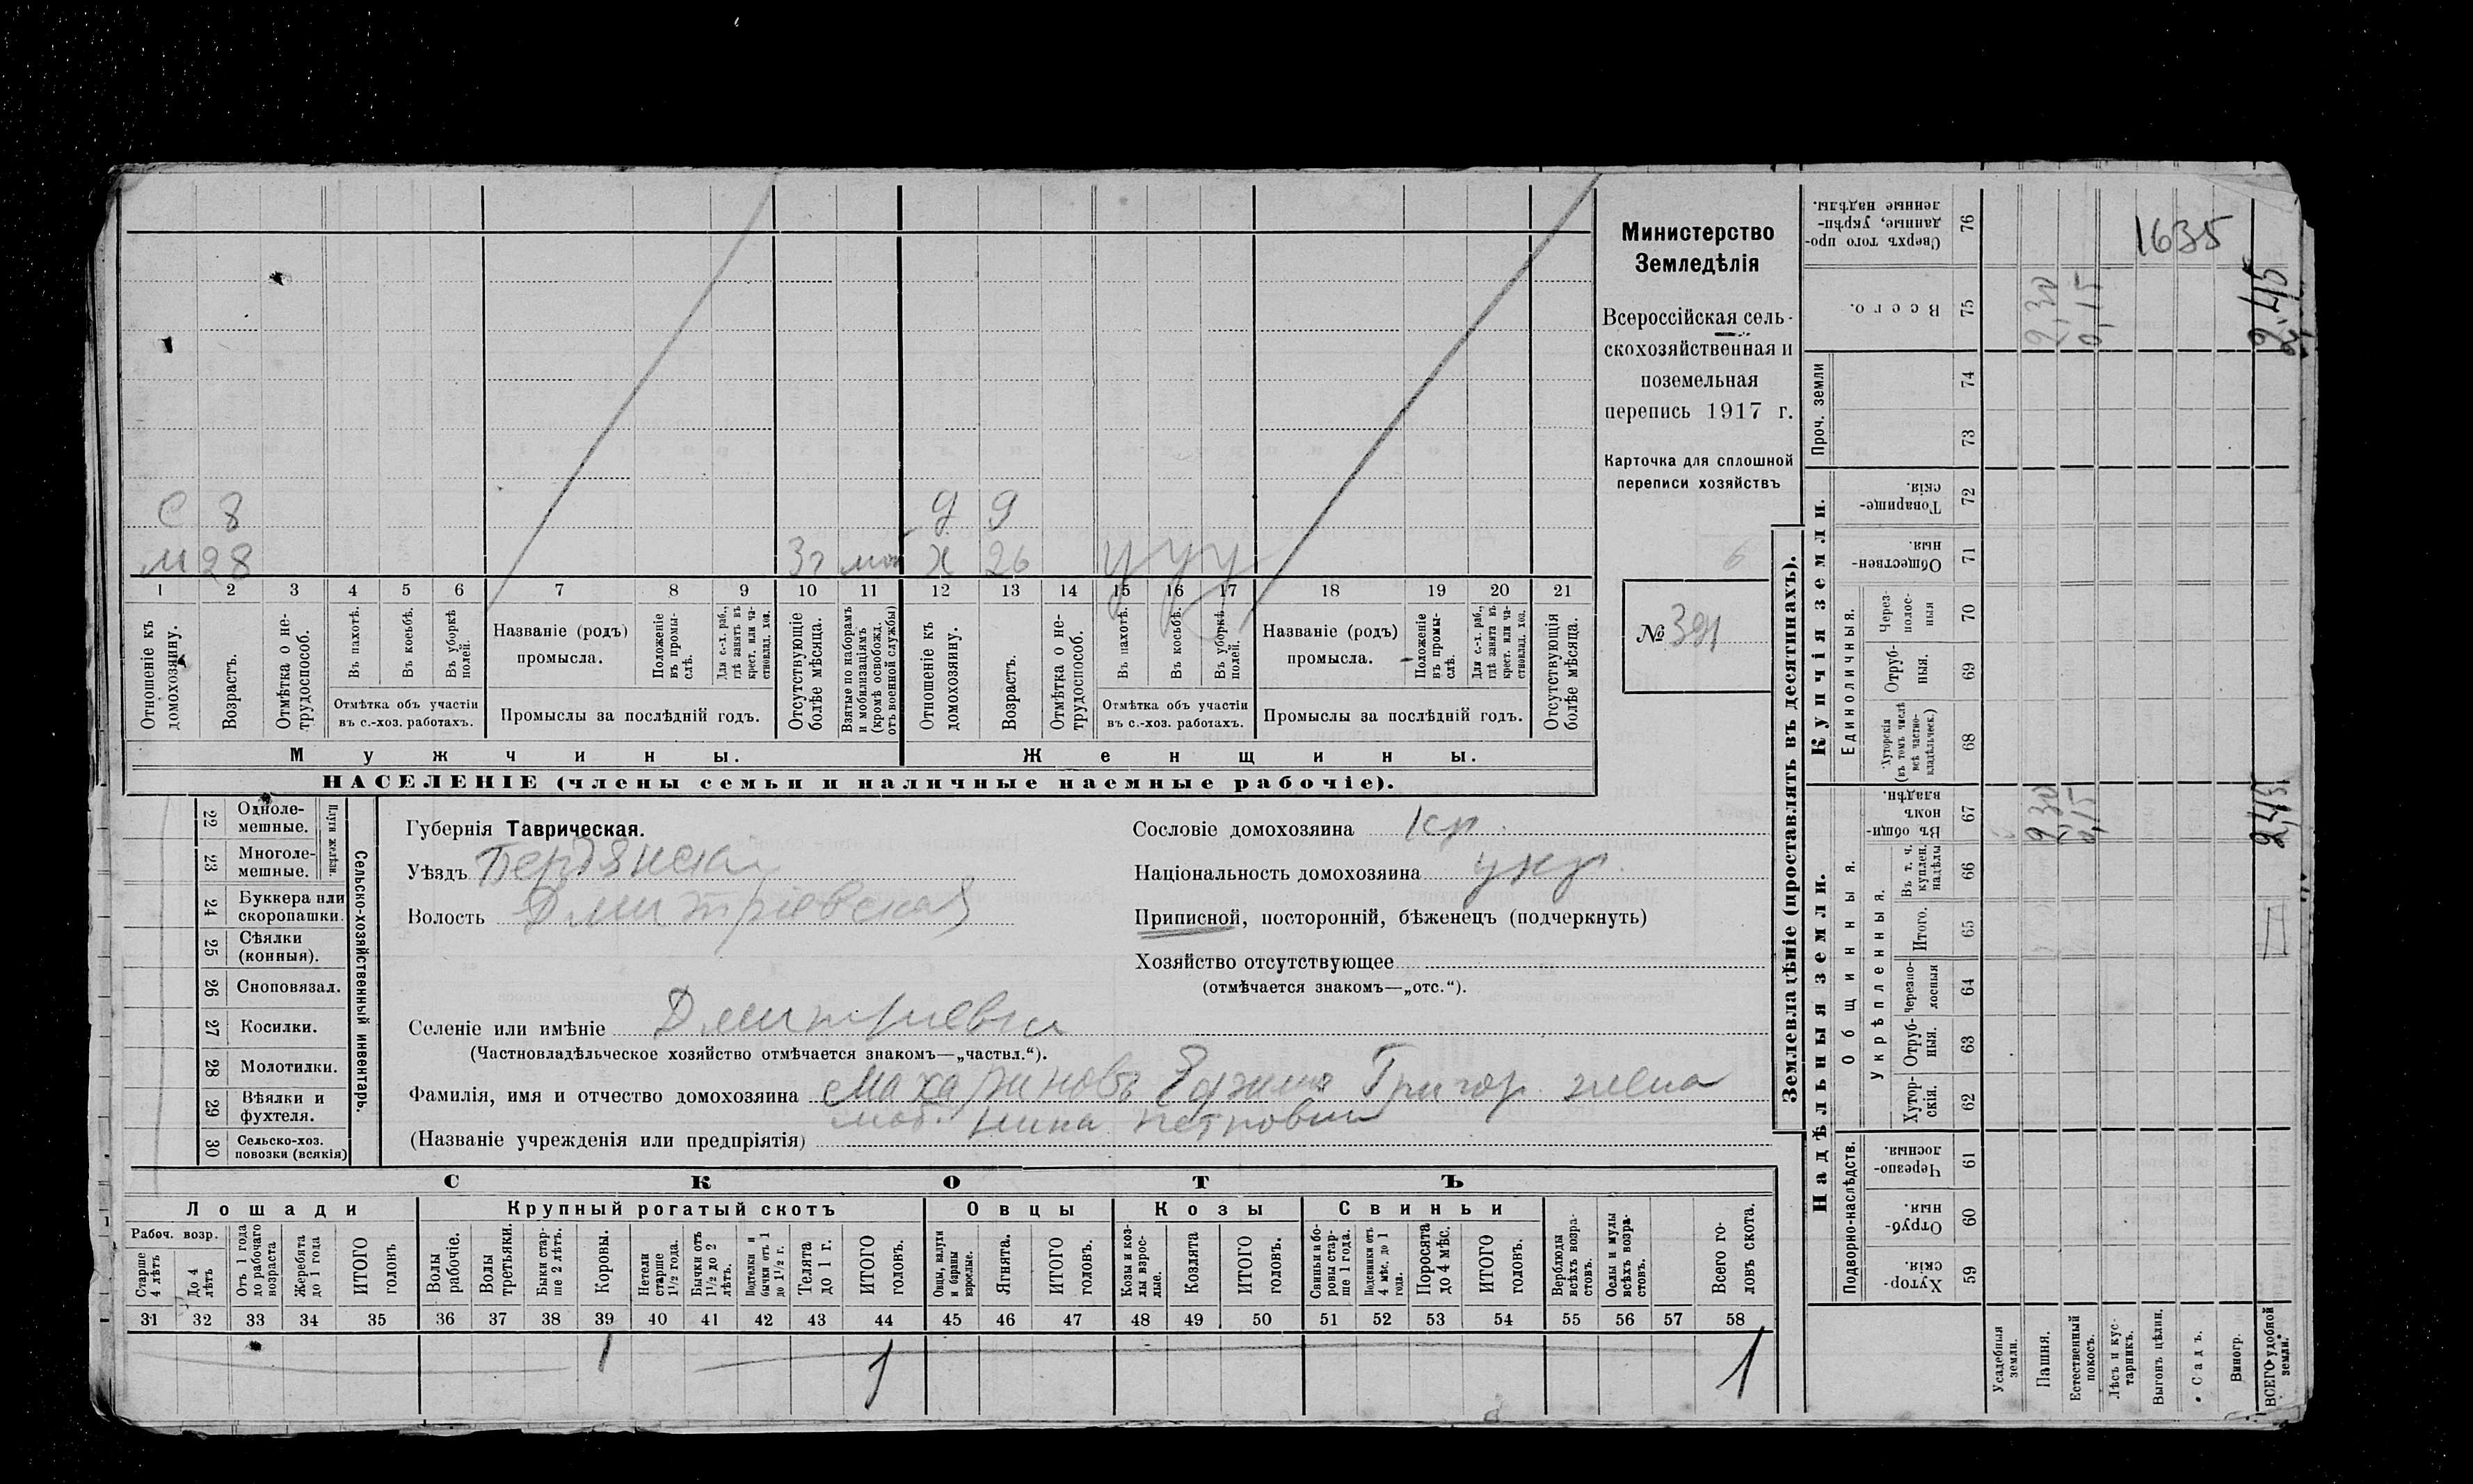 1635
Министерство
Земледѣлія
Всероссійская сель-
скохозяйственная и
поземельная
перепись 1917 г.
Карточка для сплошной
переписи хозяйствъ
6
№ 391
С 8
д 9
М 28 3 г моб
Х 26 у у у
1 2 3 4 5 6 7 8 9 10 11 12 13 14 15 16 17 18 19 20 21
Отношеніе къ домохозяину.
Возрастъ.
Отмѣтка о не-трудоспособ.
Въ пахотѣ.
Въ косьбѣ.
Въ уборкѣ полей.
Отмѣтка объ участіи
въ с.-хоз. работахъ.
Названіе (родъ)
промысла.
Положеніе въ промы-слѣ.
Для с.-х. раб., гдѣ занятъ въ крест. или ча-стновлад. хоз.
Промыслы за послѣдній годъ.
Отсутствующіе болѣе мѣсяца.
Взятые по наборамъ и мобилизаціямъ (кромѣ освобожд. отъ военной службы)
Отношеніе къ домохозяину.
Возрастъ.
Отмѣтка о не-трудоспособ.
Въ пахотѣ.
Въ косьбѣ.
Въ уборкѣ полей.
Отмѣтка объ участіи
въ с.-хоз. работахъ.
Названіе (родъ)
промысла.
Положеніе въ промы-слѣ.
Для с.-х. раб., гдѣ занята въ крест. или ча-стновлад. хоз.
Промыслы за послѣдній годъ.
Отсутствующія болѣе мѣсяца.
Мужчины.
Женщины.
НАСЕЛЕНІЕ (члены семьи и наличные наемные рабочіе).
22 Одноле-мешные.
23 Многоле-мешные.
Плуги желѣзн.
24 Буккера или скоропашки.
25 Сѣялки (конныя).
26 Сноповязал.
27 Косилки.
28 Молотилки.
29 Вѣялки и фухтеля.
30 Сельско-хоз. повозки (всякія)
Сельско-хозяйственный инвентарь.
Губернія Таврическая.
Уѣздъ Бердянск
Волость Дмитріевская
Сословіе домохозяина кр.
Національность домохозяина укр.
Приписной, посторонній, бѣженецъ (подчеркнуть)
Хозяйство отсутствующее
(отмѣчается знакомъ—„отс.“).
Селеніе или имѣніе Дмитриевка
(Частновладѣльческое хозяйство отмѣчается знакомъ—„частвл.“).
Фамилія, имя и отчество домохозяина Махариновъ Григор. жена
моб. Нина Петровна
(Названіе учрежденія или предпріятія)
СКОТЪ
Лошади
Крупный рогатый скотъ
Овцы
Козы
Свиньи
Рабоч. возр.
Старше 4 лѣтъ
До 4 лѣтъ
Отъ 1 года до рабочаго возраста
Жеребята до 1 года
ИТОГО головъ
Волы рабочіе.
Волы третьяки.
Быки стар-ше 2 лѣтъ.
Коровы.
Нетели старше 1½ года.
Бычки отъ 1½ до 2 лѣтъ.
Подтелки и бычки отъ 1 до 1½ г.
Телята до 1 г.
ИТОГО головъ.
Овцы, валухи и бараны взрослые.
Ягнята.
ИТОГО головъ.
Козы и коз-лы взрос-лые.
Козлята
ИТОГО головъ.
Свиньи и бо-ровы стар-ше 1 года.
Подсвинки отъ 4 мѣс. до 1 года.
Поросята до 4 мѣс.
ИТОГО головъ.
Верблюды всѣхъ возра-стовъ.
Ослы и мулы всѣхъ возра-стовъ.
Всего го-ловъ скота.
31 32 33 34 35 36 37 38 39 40 41 42 43 44 45 46 47 48 49 50 51 52 53 54 55 56 57 58
1 1 1
Землевладѣніе (проставлять въ десятинахъ).
Надѣльныя земли.
Купчія земли.
Проч. земли
Подворно-наслѣдств.
Общинныя.
Укрѣпленныя.
Единоличныя.
Сверхъ того про-данные, укрѣп-ленные надѣлы. 76
Всего. 75 2,30 0,15 2,45
74
73
Товарище-скія. 72
Обществен-ныя. 71
Через-полос-ныя 70
Отруб-ныя. 69
Хуторскія (въ томъ числѣ всѣ частно-владѣльческ.) 68
Въ общин-номъ владѣн. 67 2,30 0,15 2,45
Въ т. ч. куплен. надѣлы 66
Итого. 65
Черезпо-лосныя 64
Отруб-ныя. 63
Хутор-скія. 62
Черезпо-лосныя. 61
Отруб-ныя. 60
Хутор-скія. 59
Усадебныя земли.
Пашня.
Естественный покосъ.
Лѣсъ и кус-тарникъ.
Выгонъ цѣлин.
Садъ.
Виногр.
ВСЕГО удобной земли.